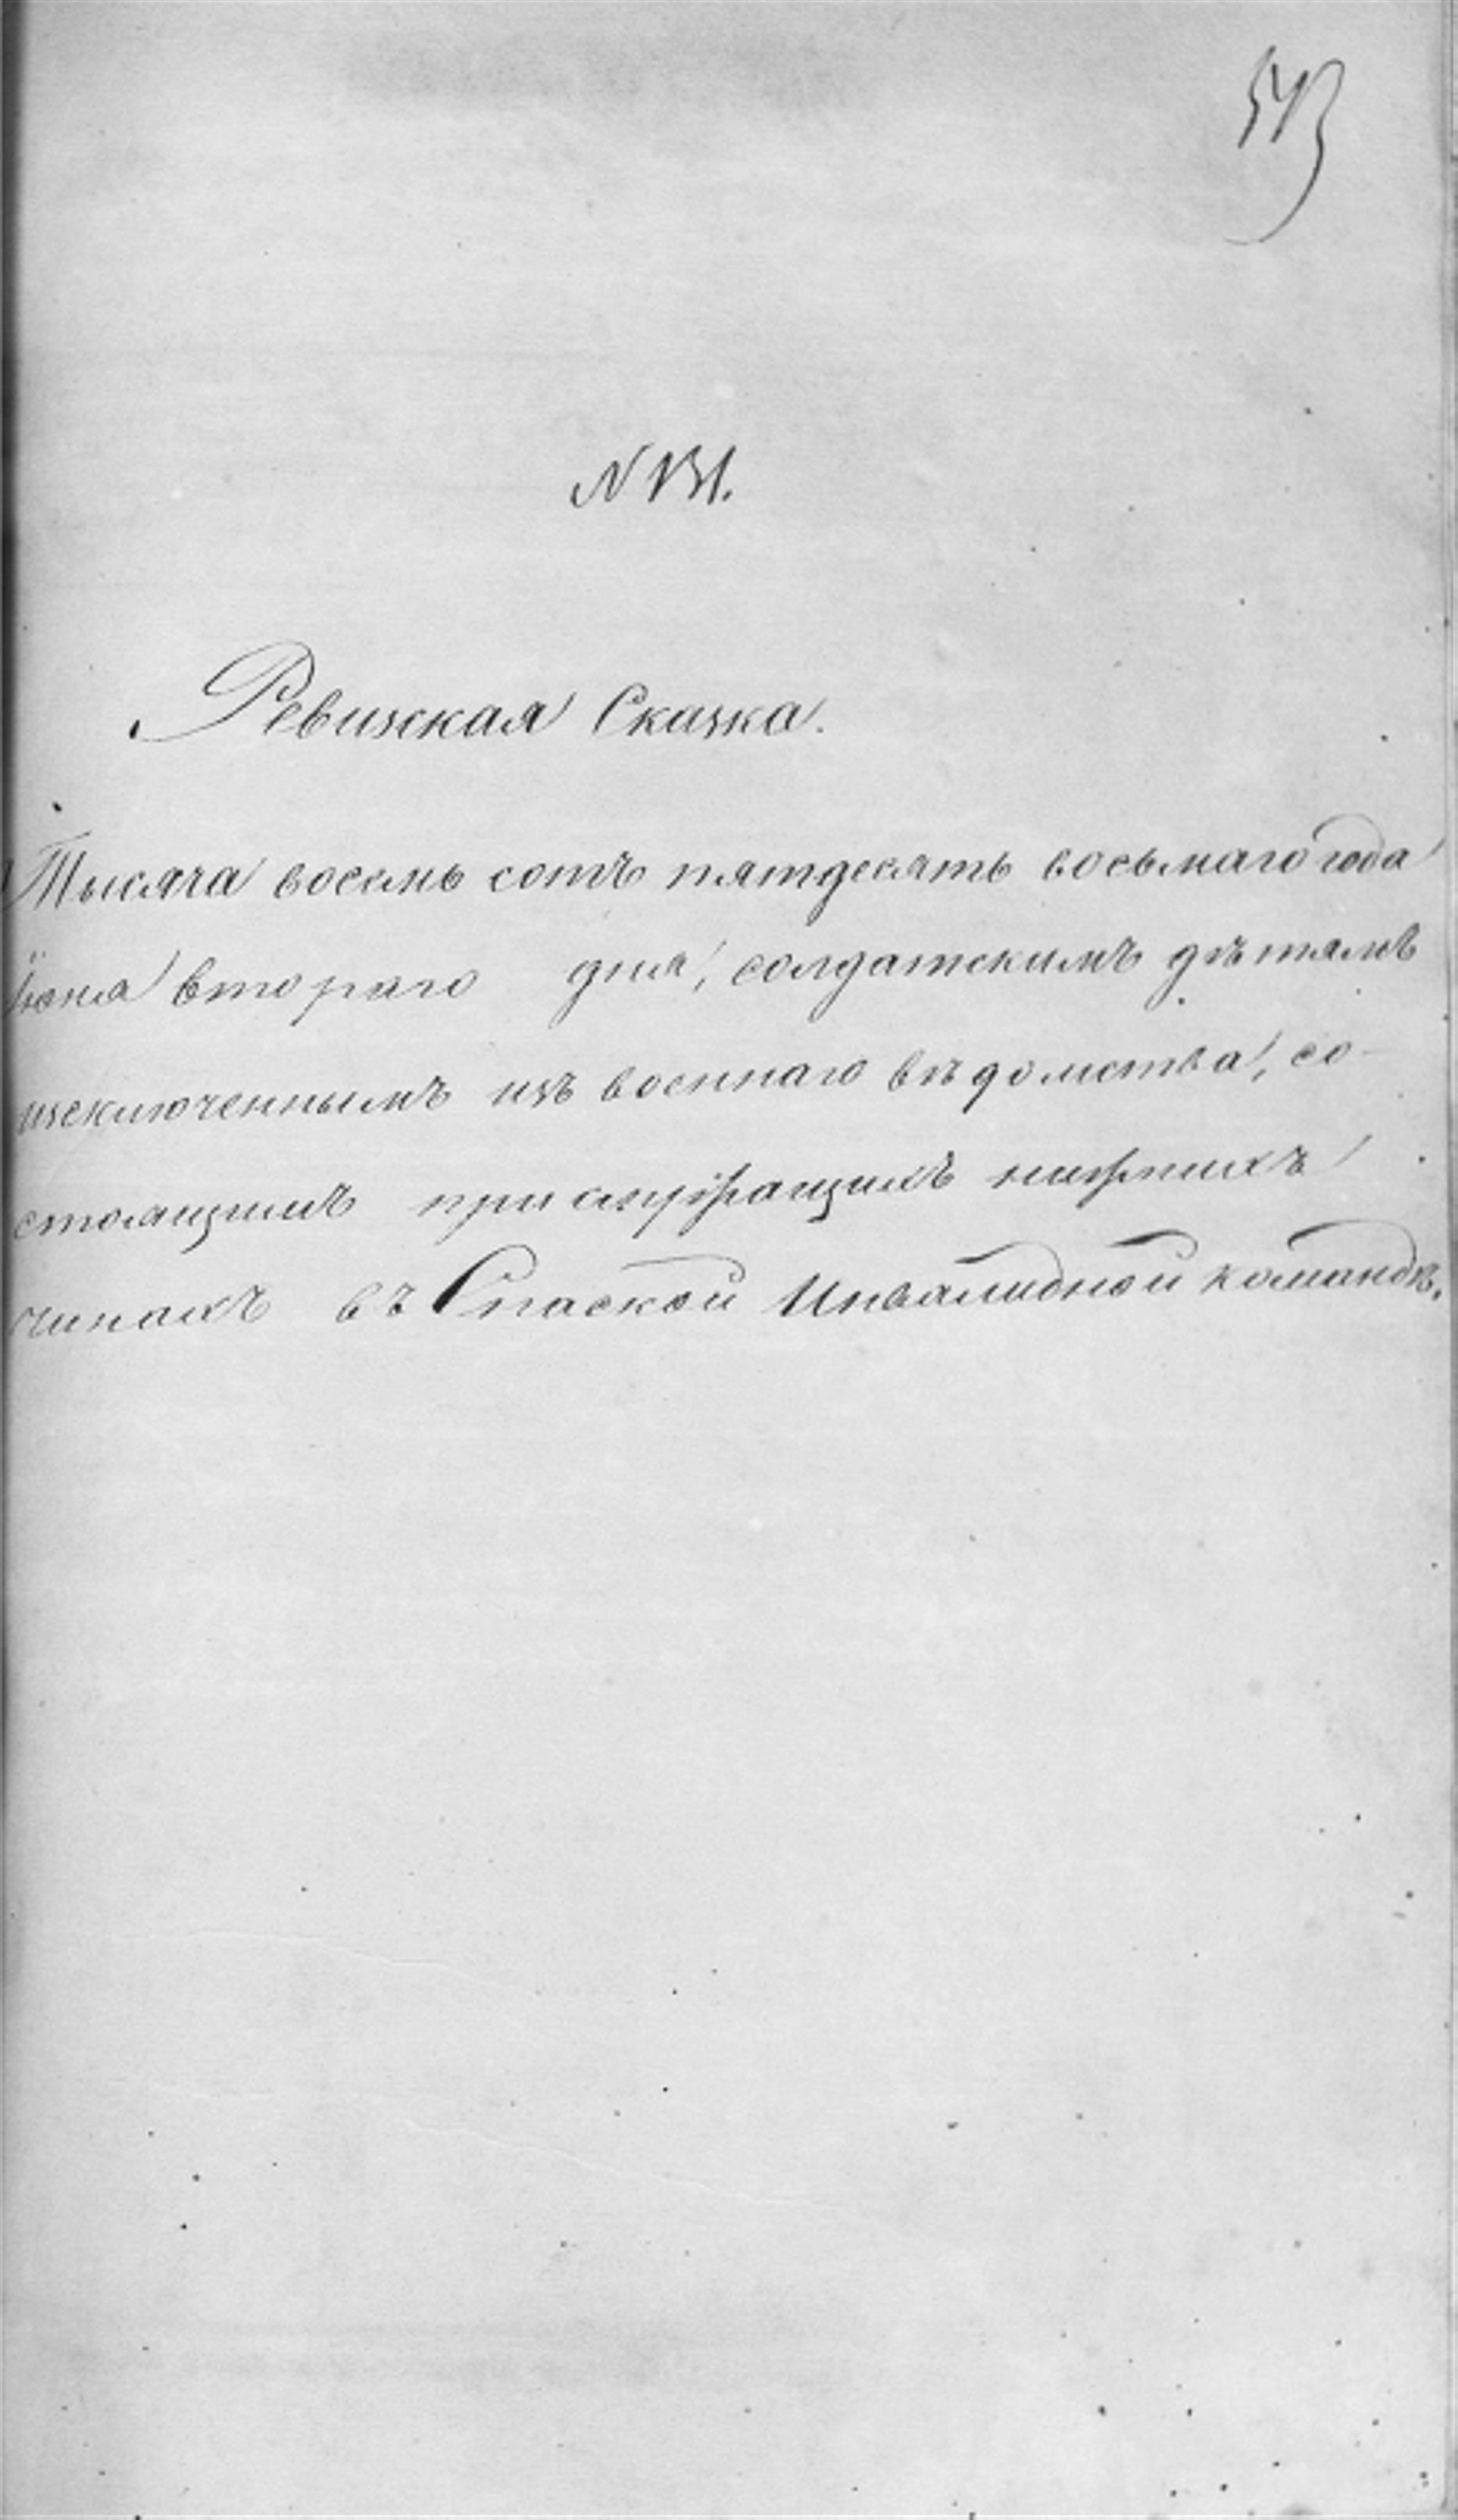 543
N 131.
Ревизская Сказка.
Тысяча восемь сотъ пятдесятъ восьмаго года
Іюня втораго дня, солдатскимъ дѣтямъ
изключеннымъ изъ военнаго вѣдомства, со-
стоящимъ при служащихъ нижнихъ
чинахъ въ Спаской Инвалидной командѣ.